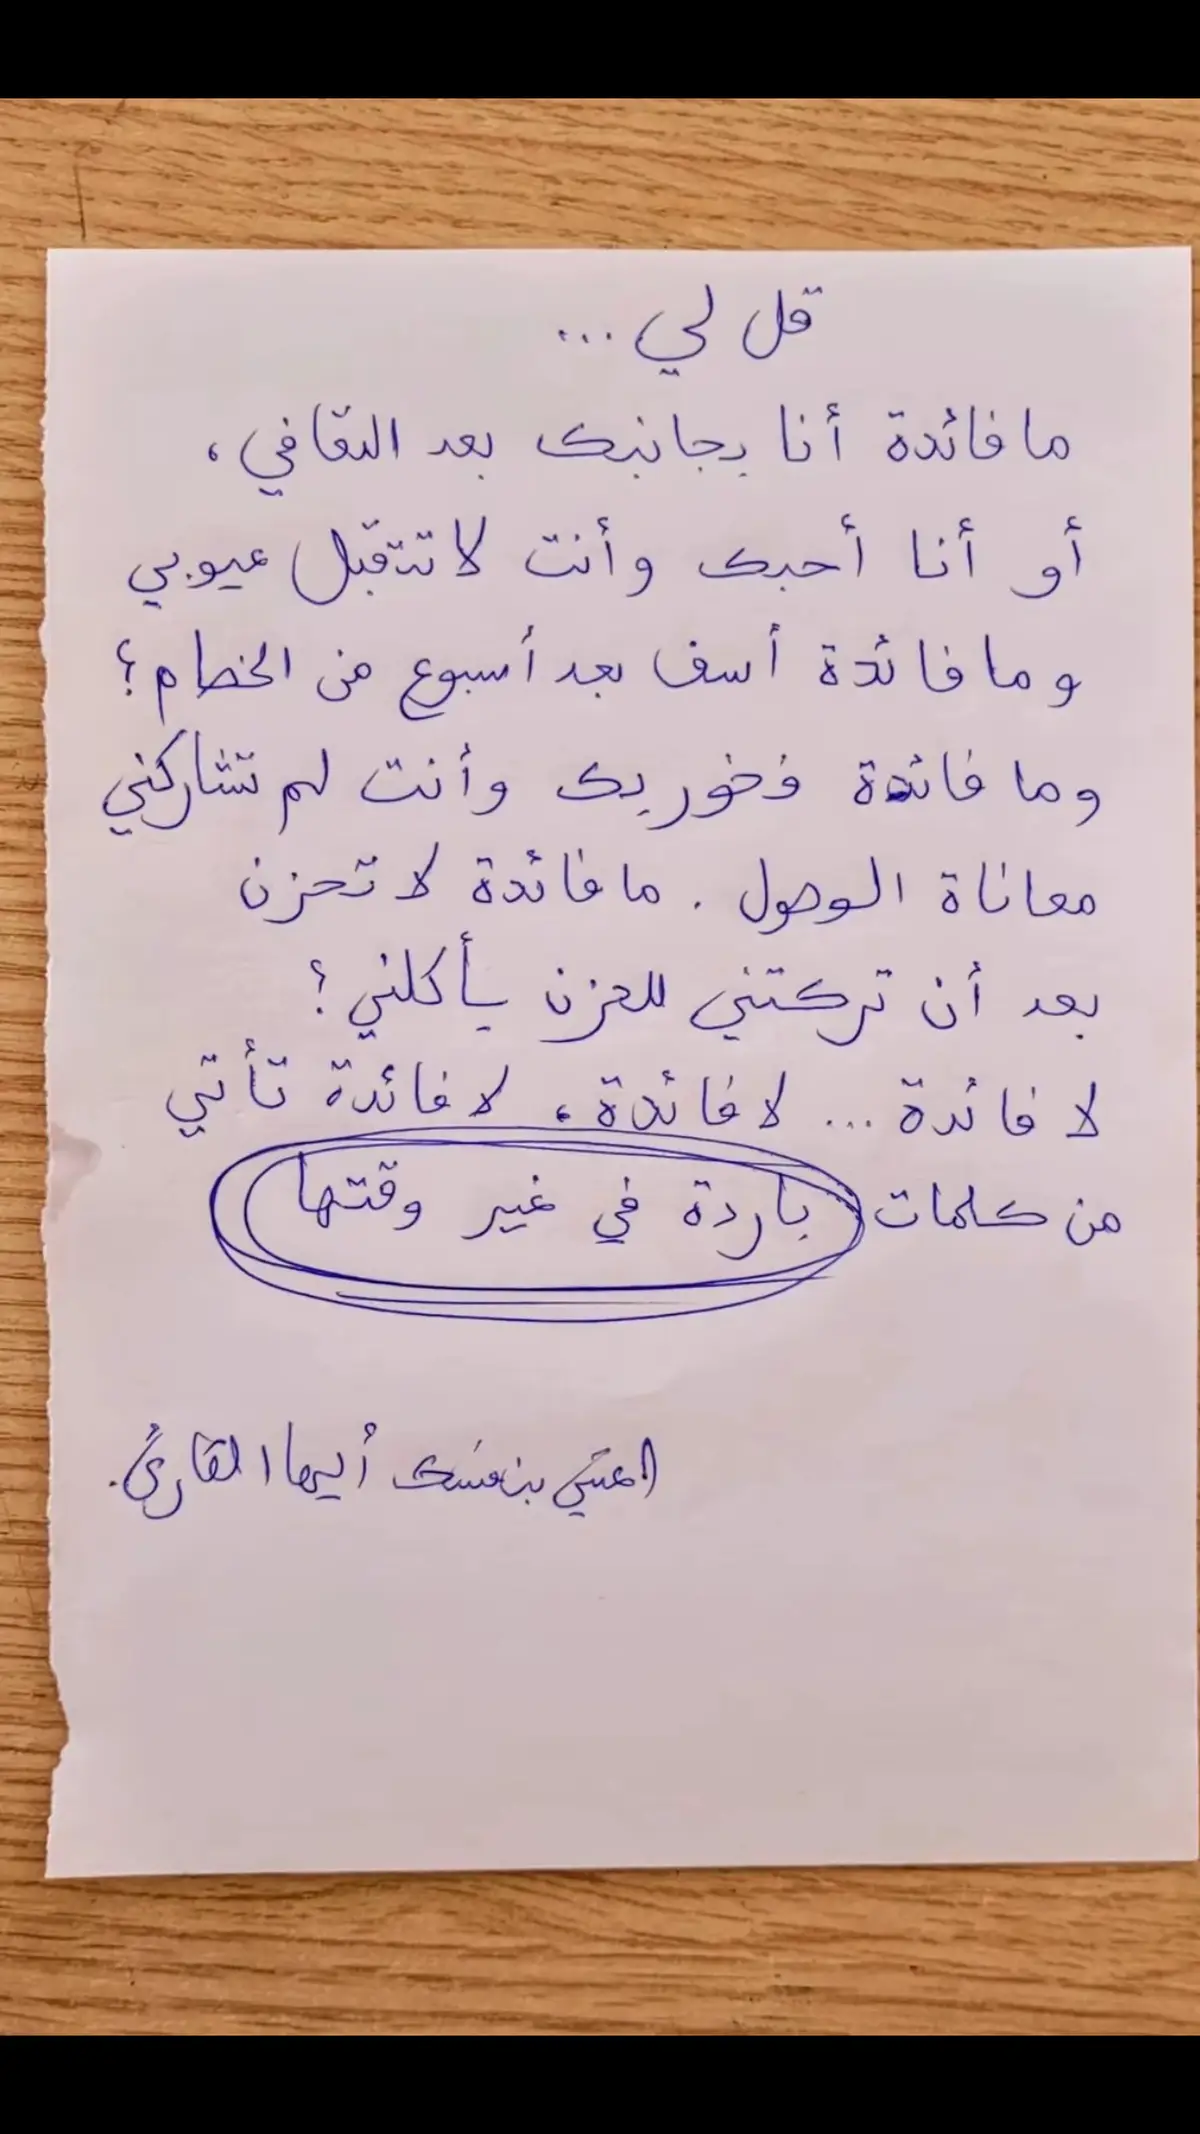 قل لي ...
ما فائدة أنا بجانبك بعد التعافي،
أو أنا أحبك وأنت لا تتقبل عيوبي
وما فائدة أسف بعد أسبوع من الخصام؟
وما فائدة فخور بك وأنت لم تشاركني
معاناة الوصول . ما فائدة لا تحزن
بعد أن تركتني للحزن يأكلني؟
لا فائدة ... لا فائدة، لا فائدة تأتي
من كلمات باردة في غير وقتها
اعتني بنفسك أيها القارئ.